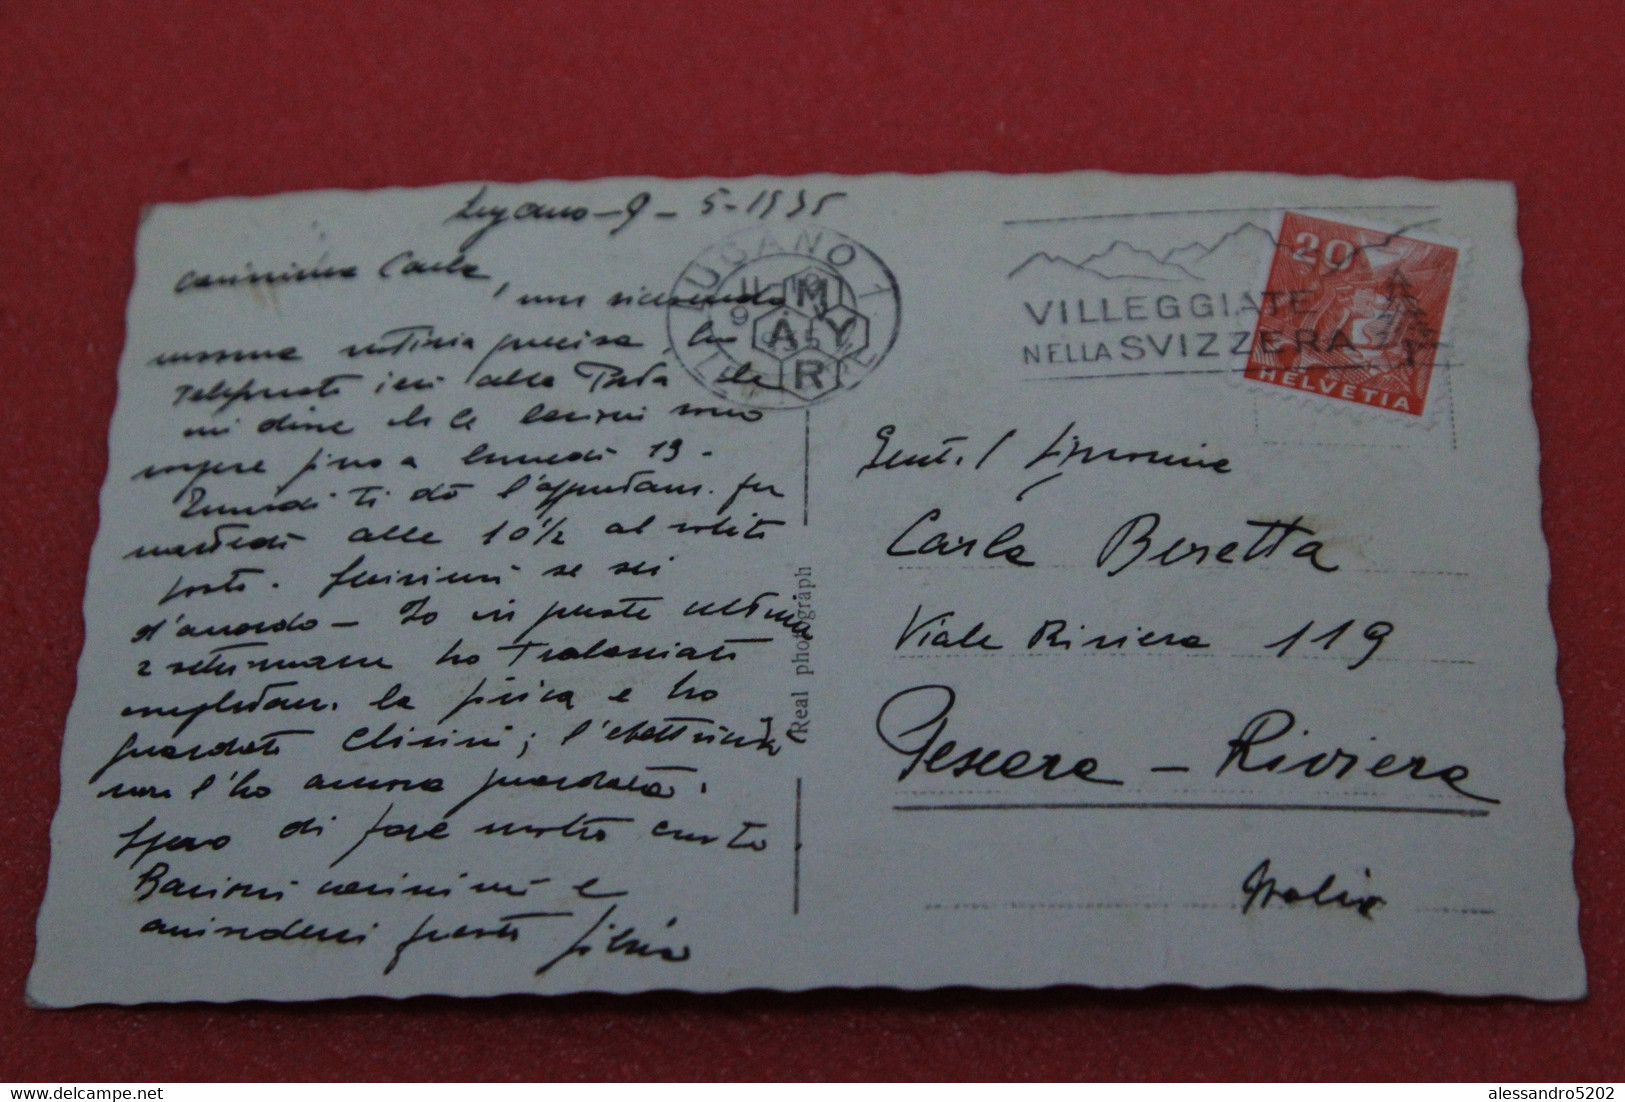 Lugano - 9 - 5 - 1935
Carissima Carla,
non ricevendo
nessuna notizia precisa, ho
telefonato ieri alla
mi dice che le lezioni sono
sospese fino a lunedì 13 -
ti dò l'appuntam. per
martedì alle 10½ al solito
posto. Scrivimi se sei
d'accordo - Io in queste ultime
2 settimane ho tralasciato
completam. la fisica e ho
guardato
non l'ho ancora guardata.
Spero di fare molto
Bacioni carissimi e
arrivederci presto Silvia
LUGANO 1
LETTERE
MAYR
VILLEGGIATE
NELLA SVIZZERA
20
HELVETIA
Real photograph
Gent. Signorina
Carla Beretta
Viale Riviera 119
Pescara - Riviera
Italia
alessandro5202